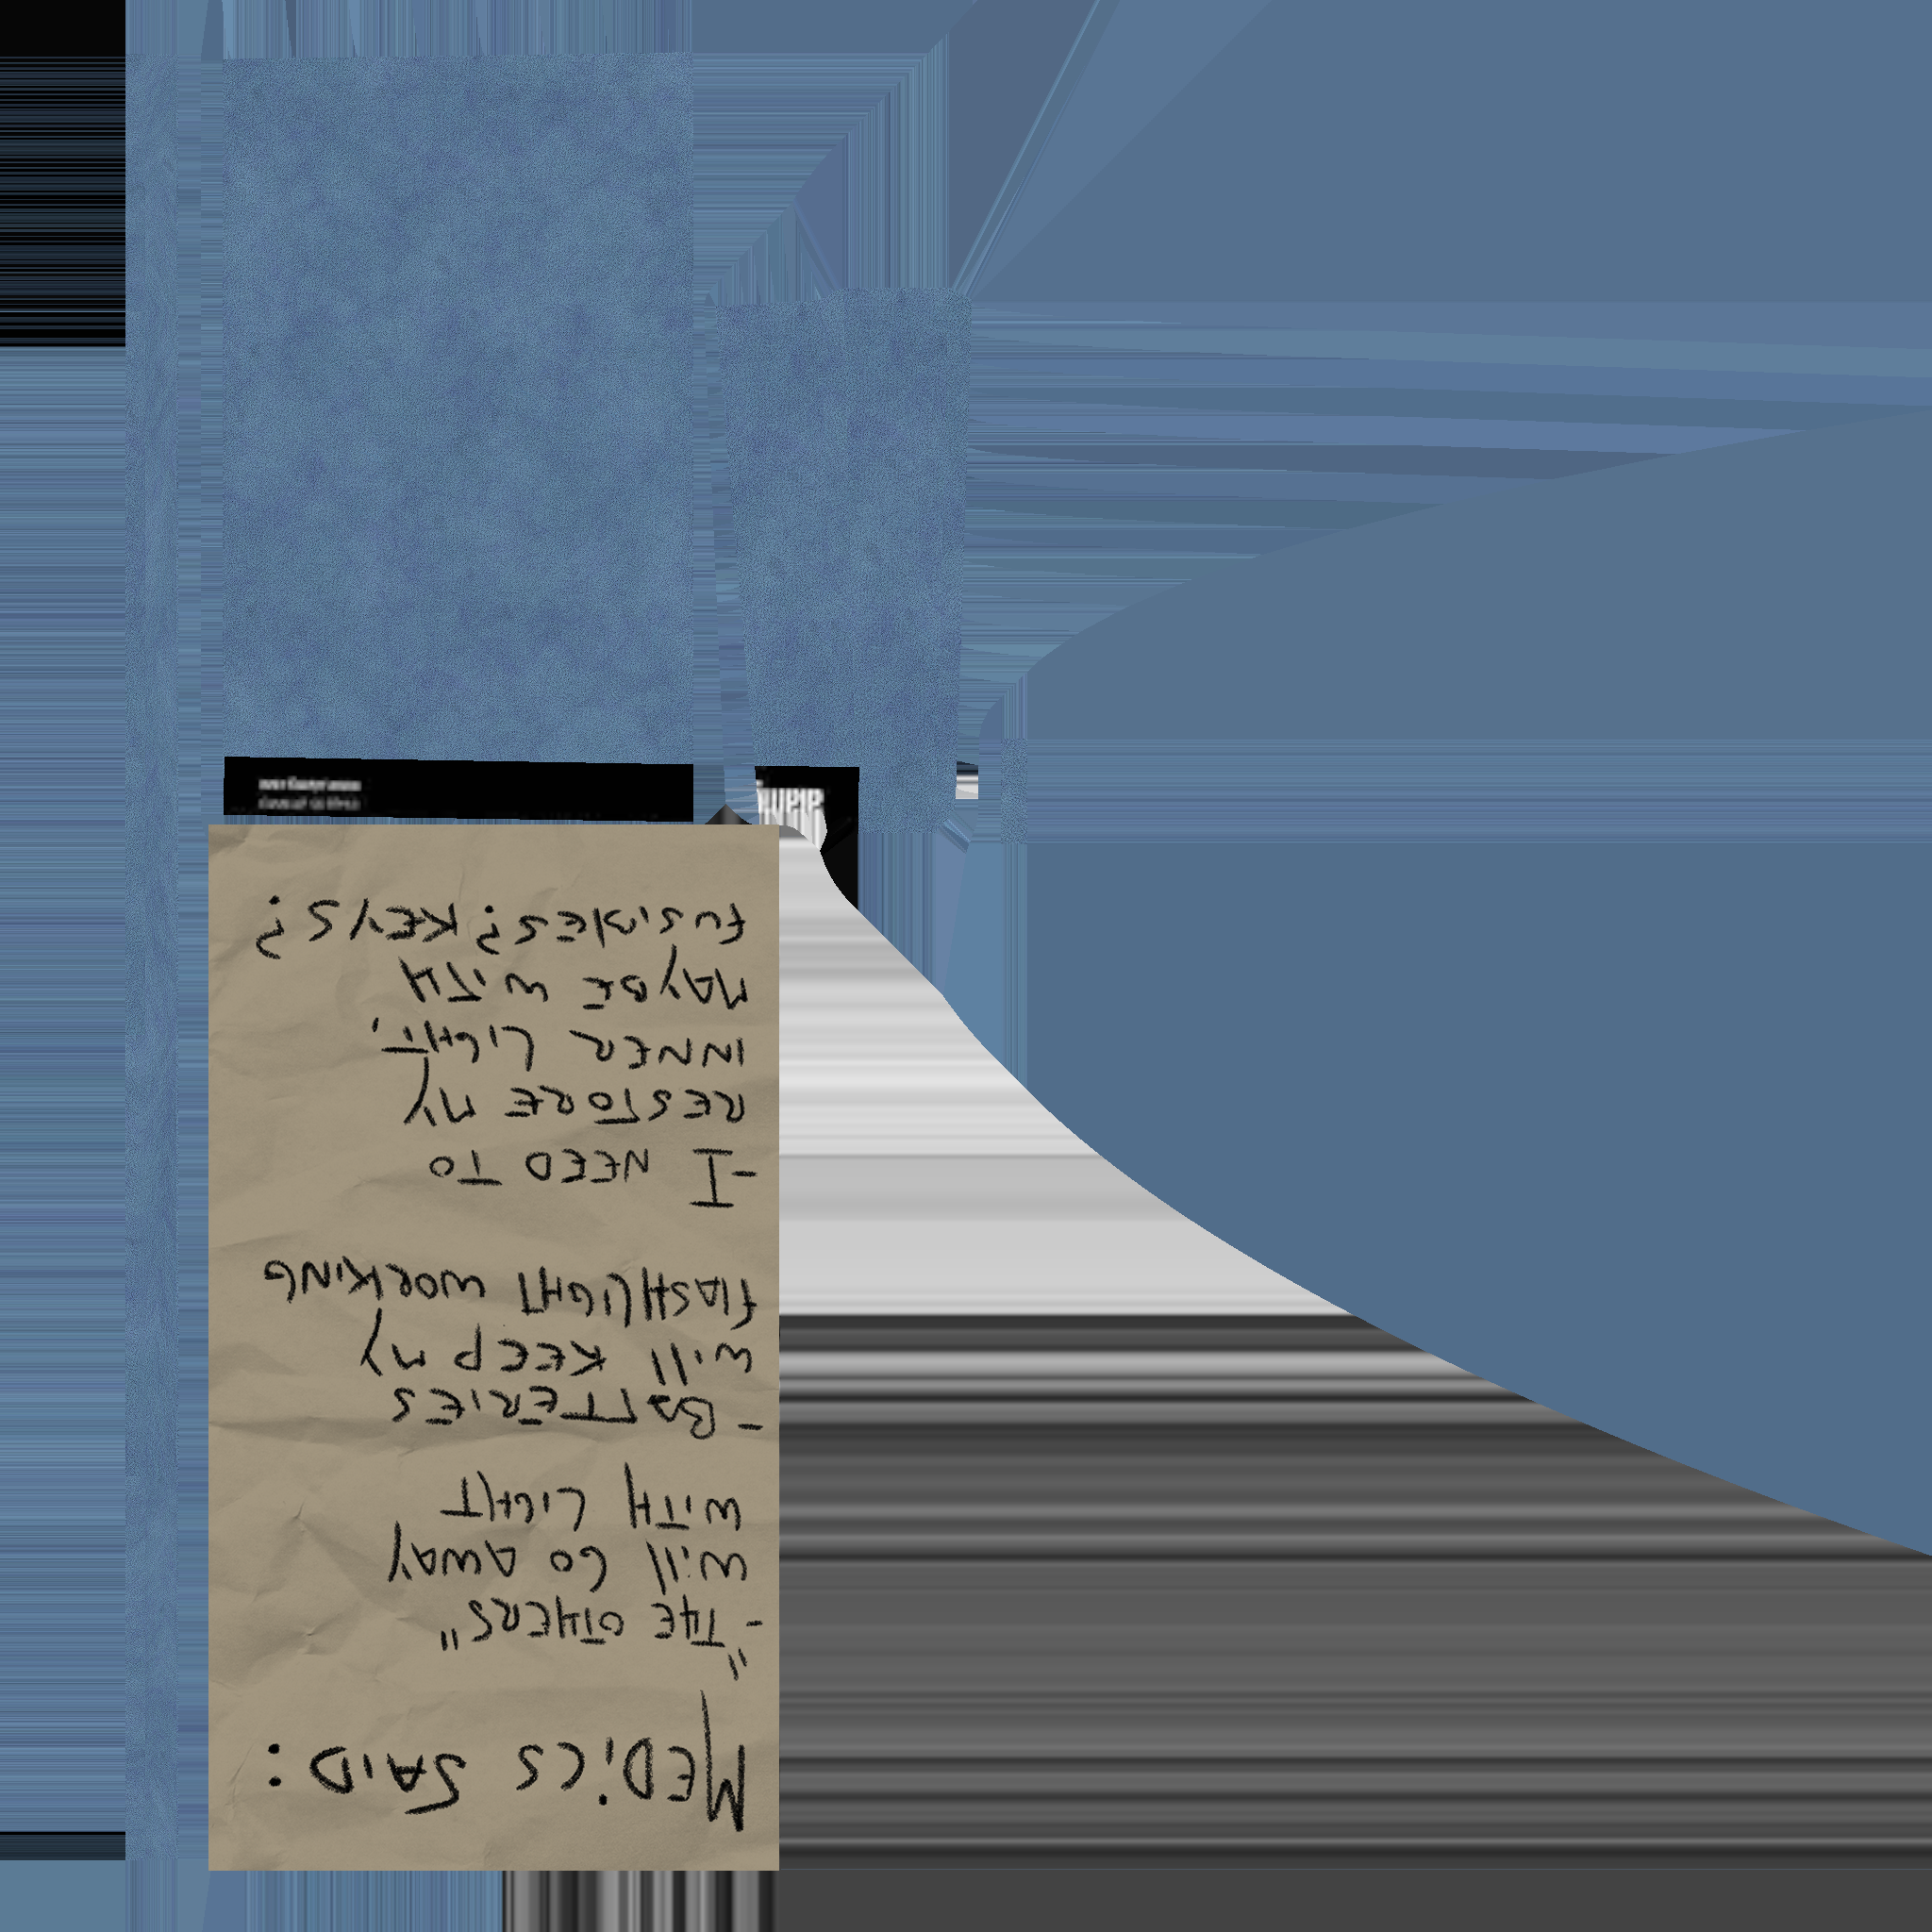 MEDICS SAID:
- "THE OTHERS"
WILL GO AWAY
WITH LIGHT
- BATTERIES
WILL KEEP MY
FLASHLIGHT WORKING
- I NEED TO
RESTORE MY
INNER LIGHT,
MAYBE WITH
FUSIBLES? KEYS?